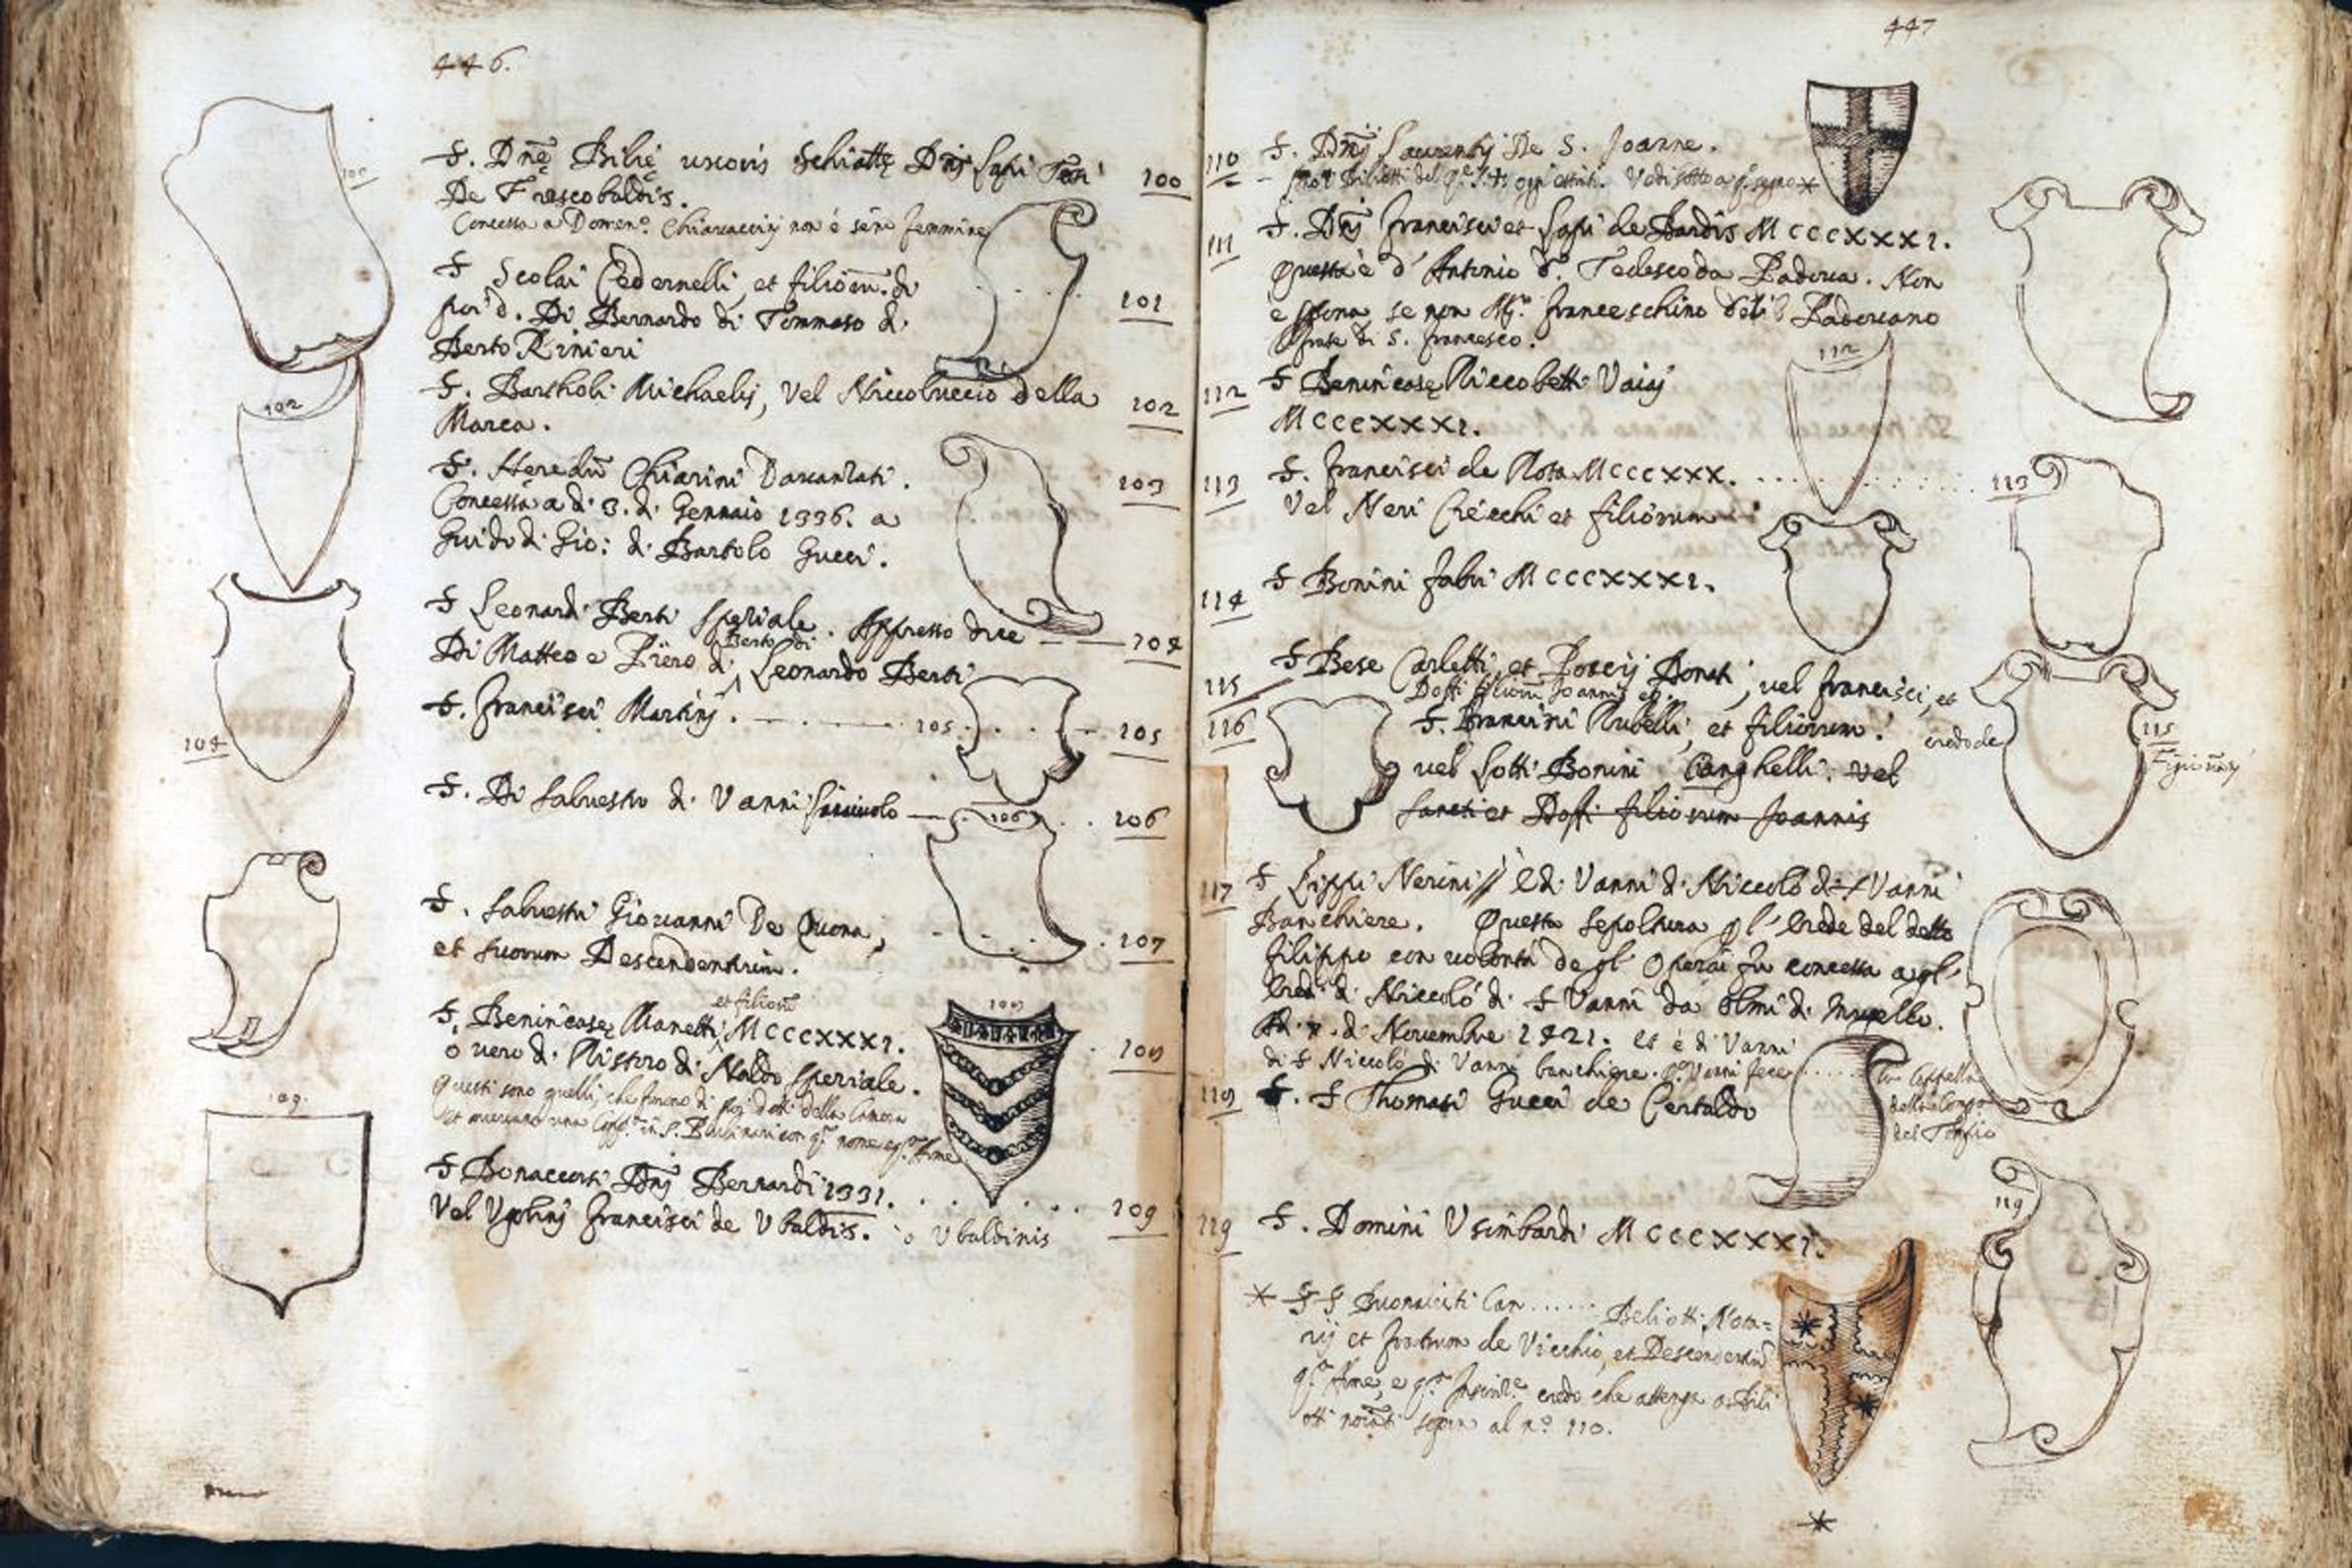 446.
S. Dnę Bilię uxoris Schiattę Dnj Lapi
De Frescobaldis.
100
Concessa a Domen.º Chiarucci non è se no femmine
S Scolai Cedernelli, et filiorū. di
poi d. Di Bernardo di Tommaso di
101
Berto Rinieri
S. Bartholi Michaelis, vel Niccoluccio della
Marca.
102
102
S. Heredū Chiarini Davanzati.
Concessa a dì 3. di Gennaio 1336. a
103
Guido di Gio: di Bartolo Gucci.
S Leonardi Berti speziale. Appresso dice
104
Di Matteo e Piero di Berto di Leonardo Berti
104
S. Francisci Martinj.
105
105
S. Di Salvestro di Vanni
106
106
S. Salvestri Giovanni De Quona,
et suorum Descendentium.
107
S. Benincasę Manetti et filiorū MCCCXXXI.
o vero di Ristoro di Naldo speziale.
108
108
Questi sono quelli, che furono di poi detti della Camera
et avevano una Capp.ª in S. con q.º nome e q.ª Arme
S Bonaccorsi Dnj Bernardi 1331.
Vel Vgolinj Francisci de Vbaldis. o Vbaldinis
109
109.
447
110
S. Dnj Laurentij De S. Joanne.
Vedi sotto a q. segno *
111
S. Dnj Francisci et Lapi de Bardis MCCCXXXI.
Questa è d'Antonio d. Tedesco da Padova. Non
è se non M.º Franceschino Padovano
frate di S. Francesco.
112
112
S Benincasę Riccobetti Vaiaj
MCCCXXXI.
113
S. Francisci de Rota MCCCXXX.
113
Vel Neri Checchi et filiorum
114
S Bonini fabri MCCCXXXI.
115
S Bese Carletti, et Donati, vel Francisci, et
Doffi filiorū Joannis
116
S. Francini Rubelli, et filiorum.
vel Lotti Bonini Canghelli. vel
Sancti et Doffi filiorum Joannis
credo de
115
117
S Lippi Nerini // E di Vanni di Niccolò di S Vanni
Banchiere. Questa sepoltura gl'erede del detto
Filippo con volontà degl'Operai fu concessa agl'
eredi di Niccolò di S Vanni da Olmi di Mugello.
di Novembre 1421. et è di Vanni
di S Niccolò di Vanni banchiere. q. Vanni fece
la Cappella
della
del
118
S. S Thomasi Gucci de Certaldo
119
S. Domini Vsimbardi MCCCXXXI.
119
* S S Buonaiuti Can...... Beliotti Nota=
rij et fratrum de Vicchio, et Descendentiū
q.ª Arme, e q.ª credo che attenga a Bili
otti notati sopra al n.º 110.
*